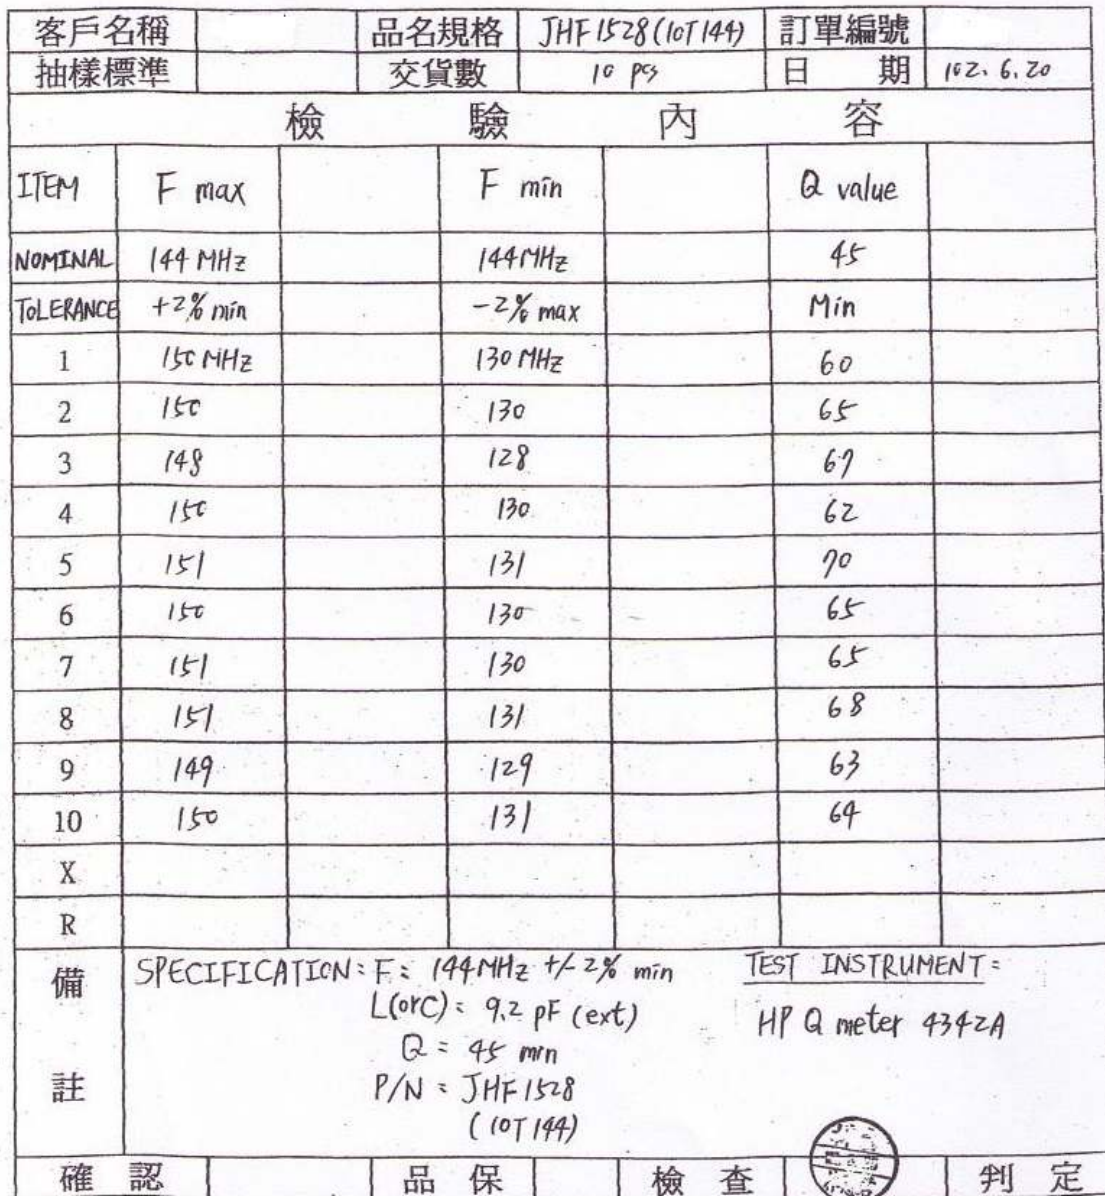 客戶名稱 品名規格 JHF1528(10T144) 訂單編號
抽樣標準 交貨數 10 pcs 日 期 102. 6. 20
檢 驗 內 容
ITEM F max F min Q value
NOMINAL 144 MHz 144 MHz 45
TOLERANCE +2% min -2% max Min
1 150 MHz 130 MHz 60
2 150 130 65
3 148 128 67
4 150 130 62
5 151 131 70
6 150 130 65
7 151 130 65
8 151 131 68
9 149 129 63
10 150 131 64
X
R
備 註
SPECIFICATION: F: 144MHz +/-2% min
L(orC): 9.2 pF (ext)
Q = 45 min
P/N: JHF1528
(10T144)
TEST INSTRUMENT:
HP Q meter 4342A
確 認 品 保 檢 查 判 定